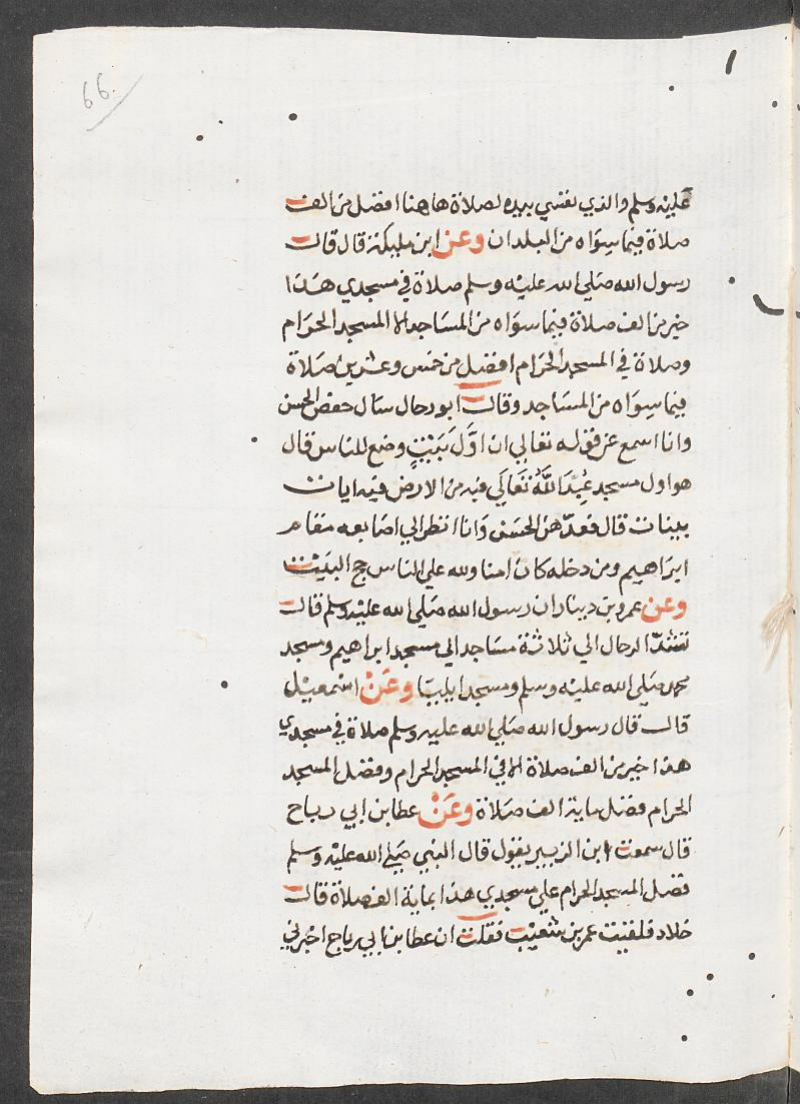 66
عليه وسلم والذي نفسي بيده لصلاة هاهنا افضل من الف
صلاة فيما سواه من البلدان وعن ابن مليكة قال قال
رسول الله صلي الله عليه وسلم صلاة في مسجدي هذا
خير من الف صلاة فيما سواه من المساجد الا المسجد الحرام
وصلاة في المسجد الحرام افضل من خمس وعشرين صلاة
فيما سواه من المساجد وقال ابو رحال سال حفص الحسن
وانا اسمع عن قوله تعالي ان اول بيت وضع للناس قال
هو اول مسجد عبد الله تعالي فيه من الارض فيه ايات
بينات قال فعدهن الحسن وانا انظر الي اصابعه مقام
ابراهيم ومن دخله كان امنا ولله علي الناس حج البيت
وعن عمرو بن دينار ان رسول الله صلي الله عليه وسلم قال
تشد الرحال الي ثلاثة مساجد الي مسجد ابراهيم ومسجد
محمد صلي الله عليه وسلم ومسجد ايليا وعن اسمعيل
قال قال رسول الله صلي الله عليه وسلم صلاة في مسجدي
هذا خير من الف صلاة الا في المسجد الحرام وفضل المسجد
الحرام فضل ماية الف صلاة وعن عطا بن ابي رباح
قال سمعت ابن الزبير يقول قال النبي صلي الله عليه وسلم
فضل المسجد الحرام علي مسجدي هذا بماية الف صلاة قال
خلاد فلقيت عمر بن شعيب فقلت ان عطا بن ابي رباح اخبرني